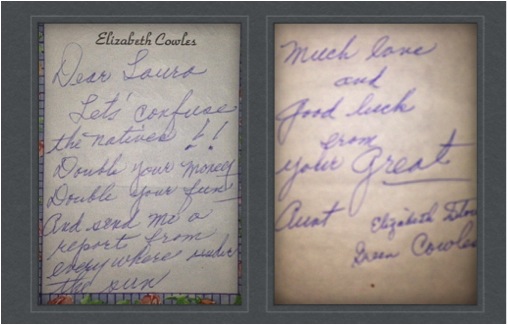 Elizabeth Cowles
Dear Laura
Lets' confuse
the natives !!
Double your money
Double your fun
And send me a
report from
everywhere under
the sun
Much love
and
Good luck
from
your Great
Aunt
Elizabeth
Green Cowles